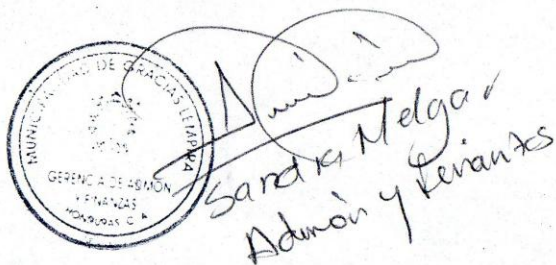 MUNICIPALIDAD DE GRACIAS LEMPIRA
GERENCIA DE ADMON
Y FINANZAS
HONDURAS C. A.
Sandra Melgar
Admón y Finanzas